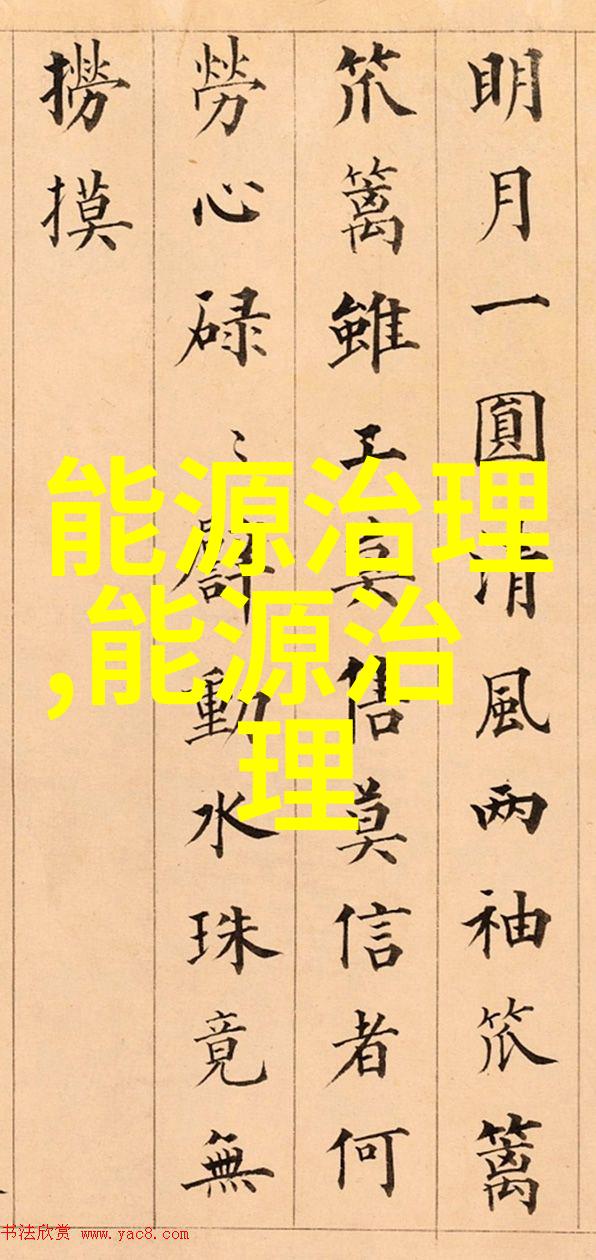 明月一圓清風两袖笊篱
笊篱雖工售莫信者何
勞心碌〻動水珠竟無
撈摸
能源治理
,能源治
理
书法欣赏 www.yac8.com